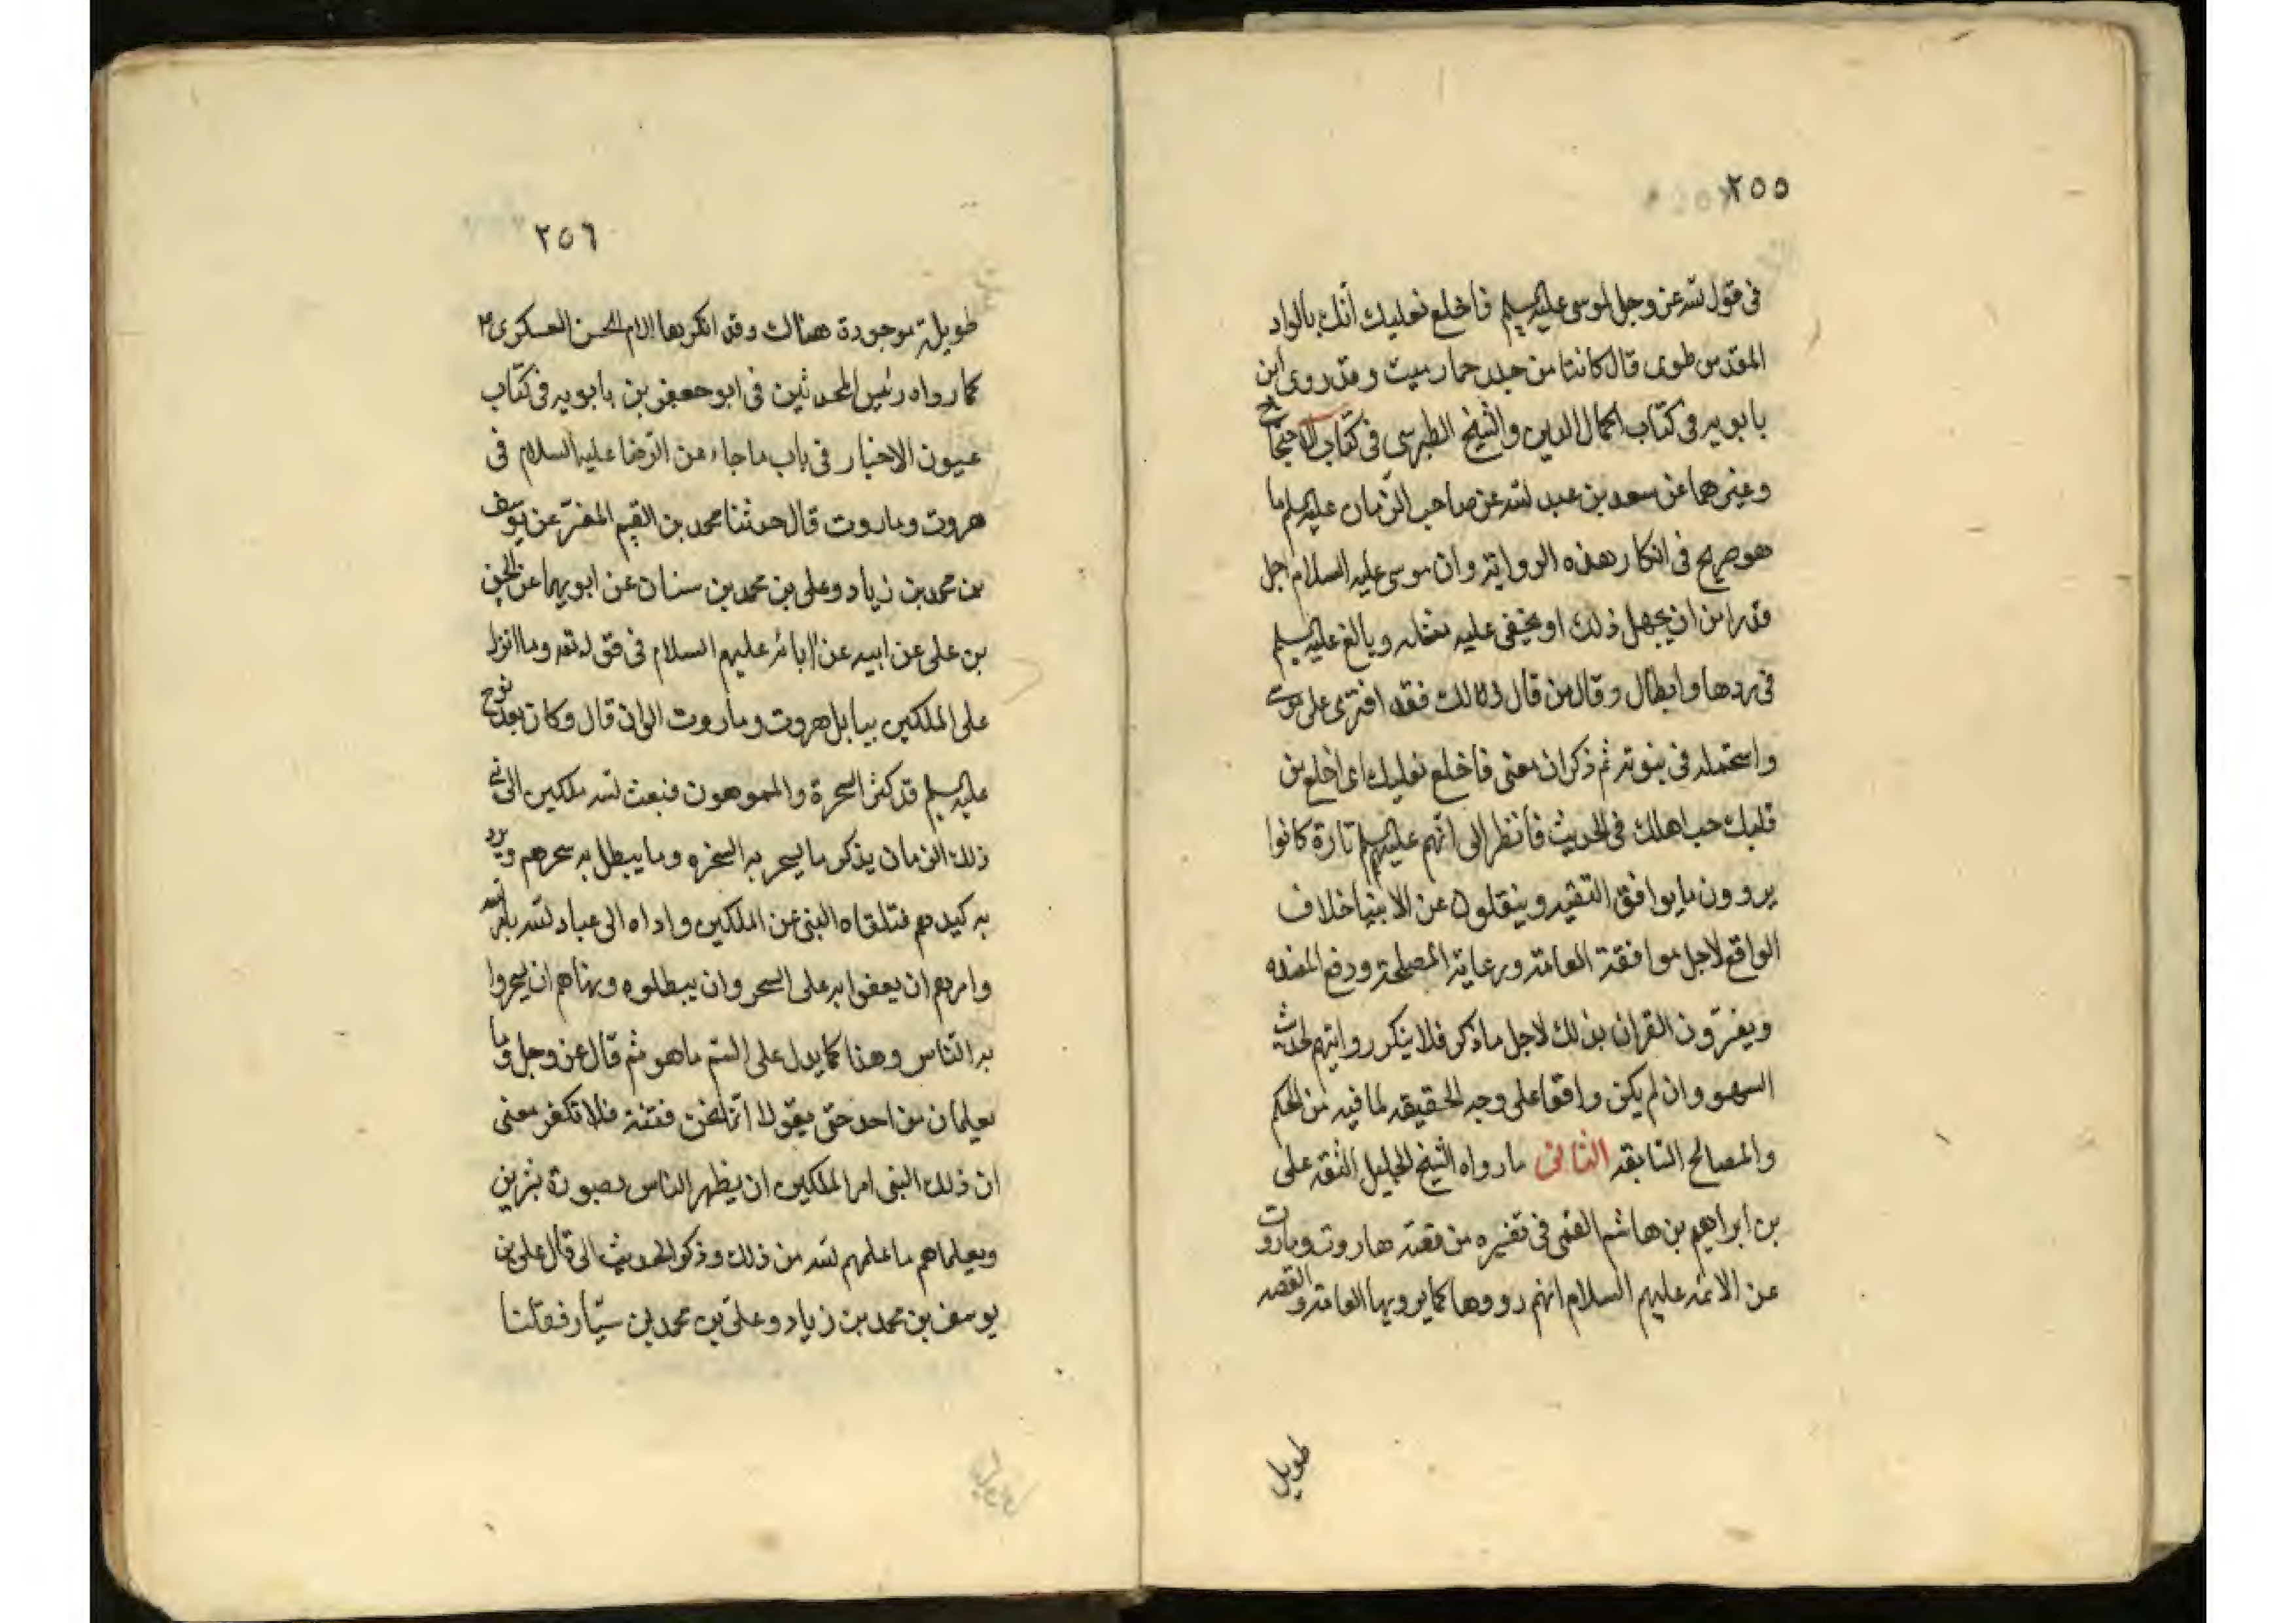 ٢٥٥
فى قول الله عز وجل لموسى عليه السلم فاخلع نعليك انك بالواد
المقدس طوى قال كانتا من جلد حمار ميت وقد روى ابن
بابويه فى كتاب اكمال الدين والشيخ الطبرسى فى كتاب الاحتجاج
وغيرهما عن سعد بن عبد الله عن صاحب الزمان عليه السلم ما
هو صريح فى انكار هذه الرواية وان موسى عليه السلام اجل
قدرا من ان يجهل ذلك او يخفى عليه وبالغ عليه السلم
فى ردها وابطال وقال من قال ذلك فقد افترى على موسى
واستجهله فى نبوته ثم ذكر ان معنى فاخلع نعليك اى اخلع من
قلبك حب اهلك فى الحديث فانظر الى انهم عليهم السلم تارة كانوا
يروون ما يوافق التقيه وينقلون عن الانبيا خلاف
الواقع لاجل موافقة العامة ورعاية المصلحة ودفع المفسده
ويفسرون القران بذلك لاجل ما ذكر فلا ينكر روايتهم لحديث
السهو وان لم يكن واقعا على وجه الحقيقه لما فيه من الحكم
والمصالح السابقه الثانى ما رواه الشيخ الجليل الثقه على
بن ابراهيم بن هاشم القمى فى تفسيره من قصة هاروت وماروت
عن الائمه عليهم السلام انهم رووها كما يرويها العامة والقصه
طويل
٢٥٦
طويلة موجودة هناك وقد انكرها الامام الحسن العسكرى ع
كما رواه رئيس المحدثين فى ابو جعفر بن بابويه فى كتاب
عيون الاخبار فى باب ما جاء من الرضا عليه السلام فى
هروت وماروت قال حدثنا محمد بن القسم المفسر عن يوسف
بن محمد بن زياد وعلى بن محمد بن سنان عن ابويهما عن الحسن
بن على عن ابيه عن ابائه عليهم السلام فى قوله تعه وما انزل
على الملكين ببابل هروت وماروت الى ان قال وكان بعد نوح
عليه السلم قد كثر السحرة والمموهون فبعث الله ملكين الى نبى
ذلك الزمان يذكر ما يسحر به السحره وما يبطل به سحرهم ويرد
به كيدهم فتلقاه النبى عن الملكين واداه الى عباد الله بامر الله
وامرهم ان يقفوا به على السحر وان يبطلوه ونهاهم ان يسحروا
به الناس وهذا كما يدل على السم ما هو ثم قال عز وجل وما
يعلمان من احد حتى يقولا انما نحن فتنة فلا تكفر معنى
ان ذلك النبى امر الملكين ان يظهر الناس بصورة بشرين
ويعلماهم ما علمهم الله من ذلك وذكر الحديث الى قال على بن
يوسف بن محمد بن زياد وعلى بن محمد بن سيار فقلنا